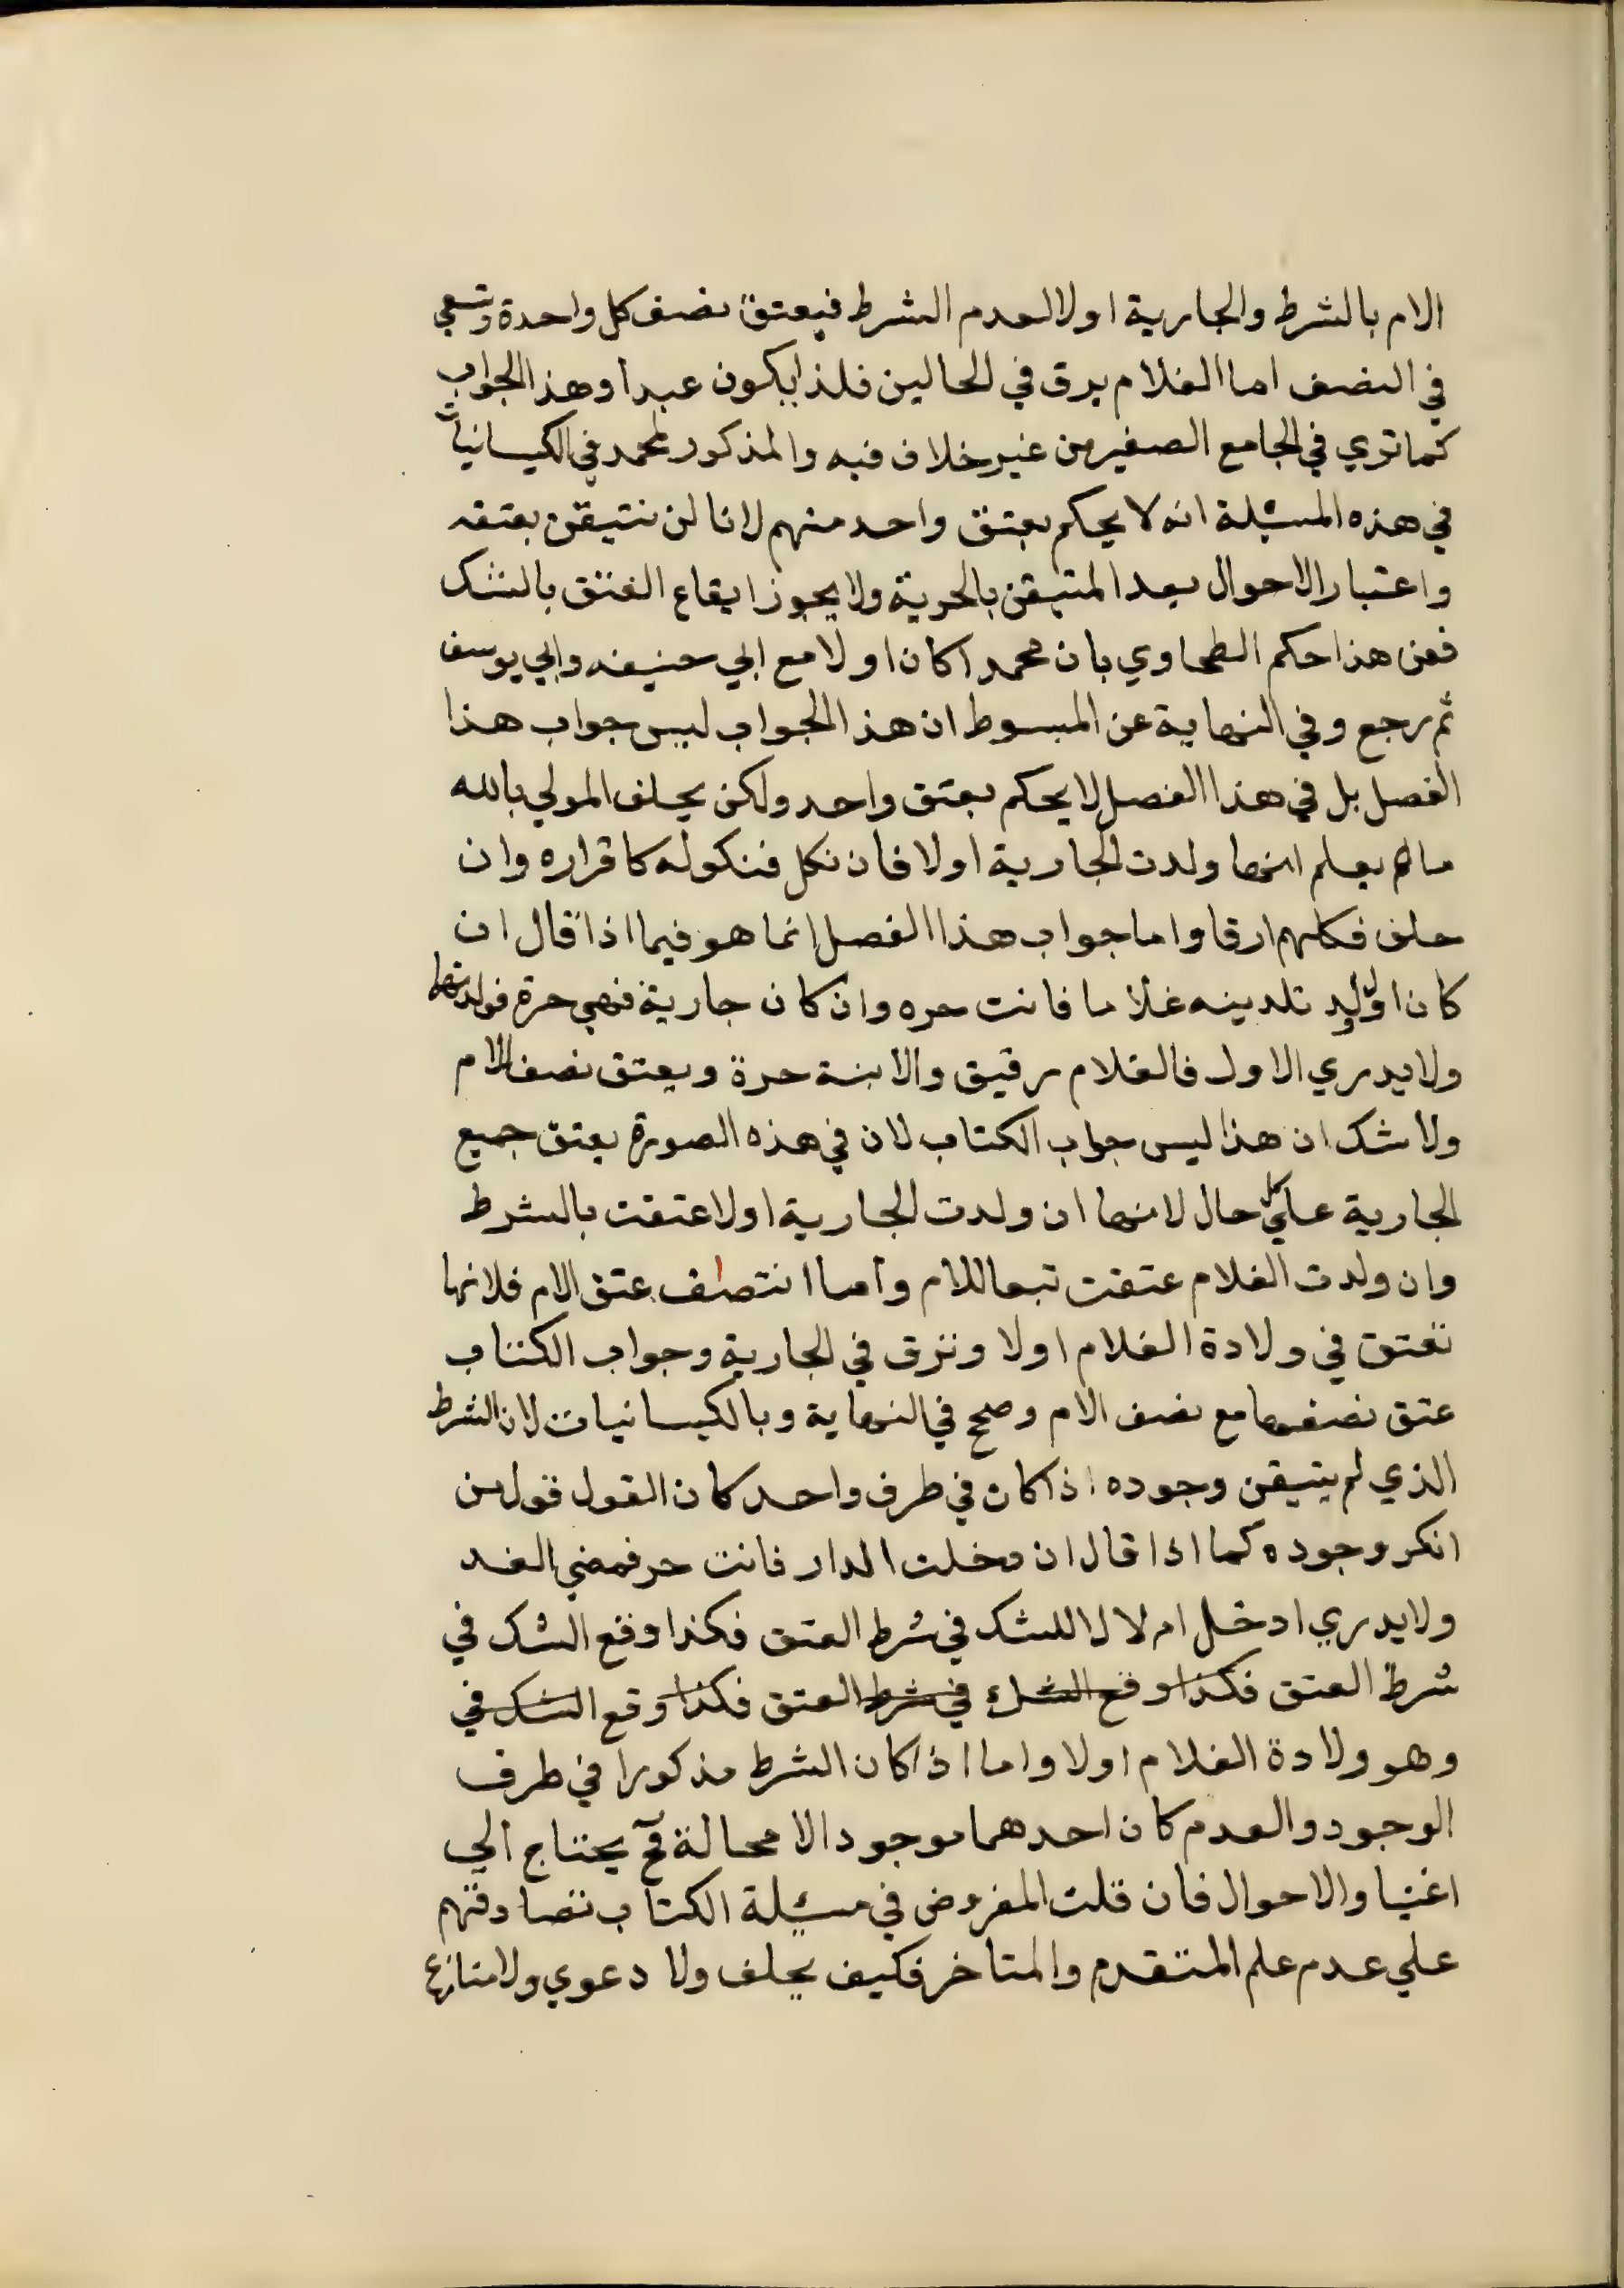 الام بالشرط والجارية اولا لعدم الشرط فيعتق نصف كل واحدة وتسعي
في النصف اما الغلام يرق في الحالين فلذا يكون عبدا وهذا الجواب
كما تري في الجامع الصغير من غير خلاف فيه والمذكور لمحمد في الكيسانيات
في هذه المسئلة انه لا يحكم بعتق واحد منهم لانا لن نتيقن بعتقه
واعتبار الاحوال بعد المتيقن بالحرية ولا يجوز ايقاع العتق بالشك
فعن هذا حكم الطحاوي بان محمدا كان اولا مع ابي حنيفه وابي يوسف
ثم رجع وفي النهاية عن المبسوط ان هذا الجواب ليس جواب هذا
الفصل بل في هذا الفصل لا يحكم بعتق واحد ولكن يحلف المولي بالله
ما لم يعلم انها ولدت الجارية اولا فان نكل فنكوله كاقراره وان
حلف فكلهم ارقا واما جواب هذا الفصل انما هو فيما اذا قال ان
كان اول ولد تلدينه غلاما فانت حره وان كان جارية فهي حرة فولدتهما
ولا يدري الاول فالغلام رقيق والابنة حرة ويعتق نصف الام
ولا شك ان هذا ليس جواب الكتاب لان في هذه الصورة يعتق جميع
الجارية علي كل حال لانها ان ولدت الجارية اولا عتقت بالشرط
وان ولدت الغلام عتقت تبعا للام واما انتصاف عتق الام فلانها
تعتق في ولادة الغلام اولا وترق في الجارية وجواب الكتاب
عتق نصفها مع نصف الام وصحح في النهاية وبالكيسانيات لان الشرط
الذي لم يتيقن وجوده اذا كان في طرف واحد كان القول قول من
انكر وجوده كما اذا قال ان دخلت الدار فانت حر فمضي الغد
ولا يدري ادخل ام لا لا للشك في شرط العتق فكذا وقع الشك في
شرط العتق فكذا وقع الشك في شرط العتق فكذا وقع الشك في
وهو ولادة الغلام اولا واما اذا كان الشرط مذكورا في طرف
الوجود والعدم كان احدهما موجودا لا محالة فح يحتاج الي
اعتبار الاحوال فان قلت المفروض في مسئلة الكتاب تصادقهم
علي عدم علم المتقدم والمتاخر فكيف يحلف ولا دعوي ولا منازع